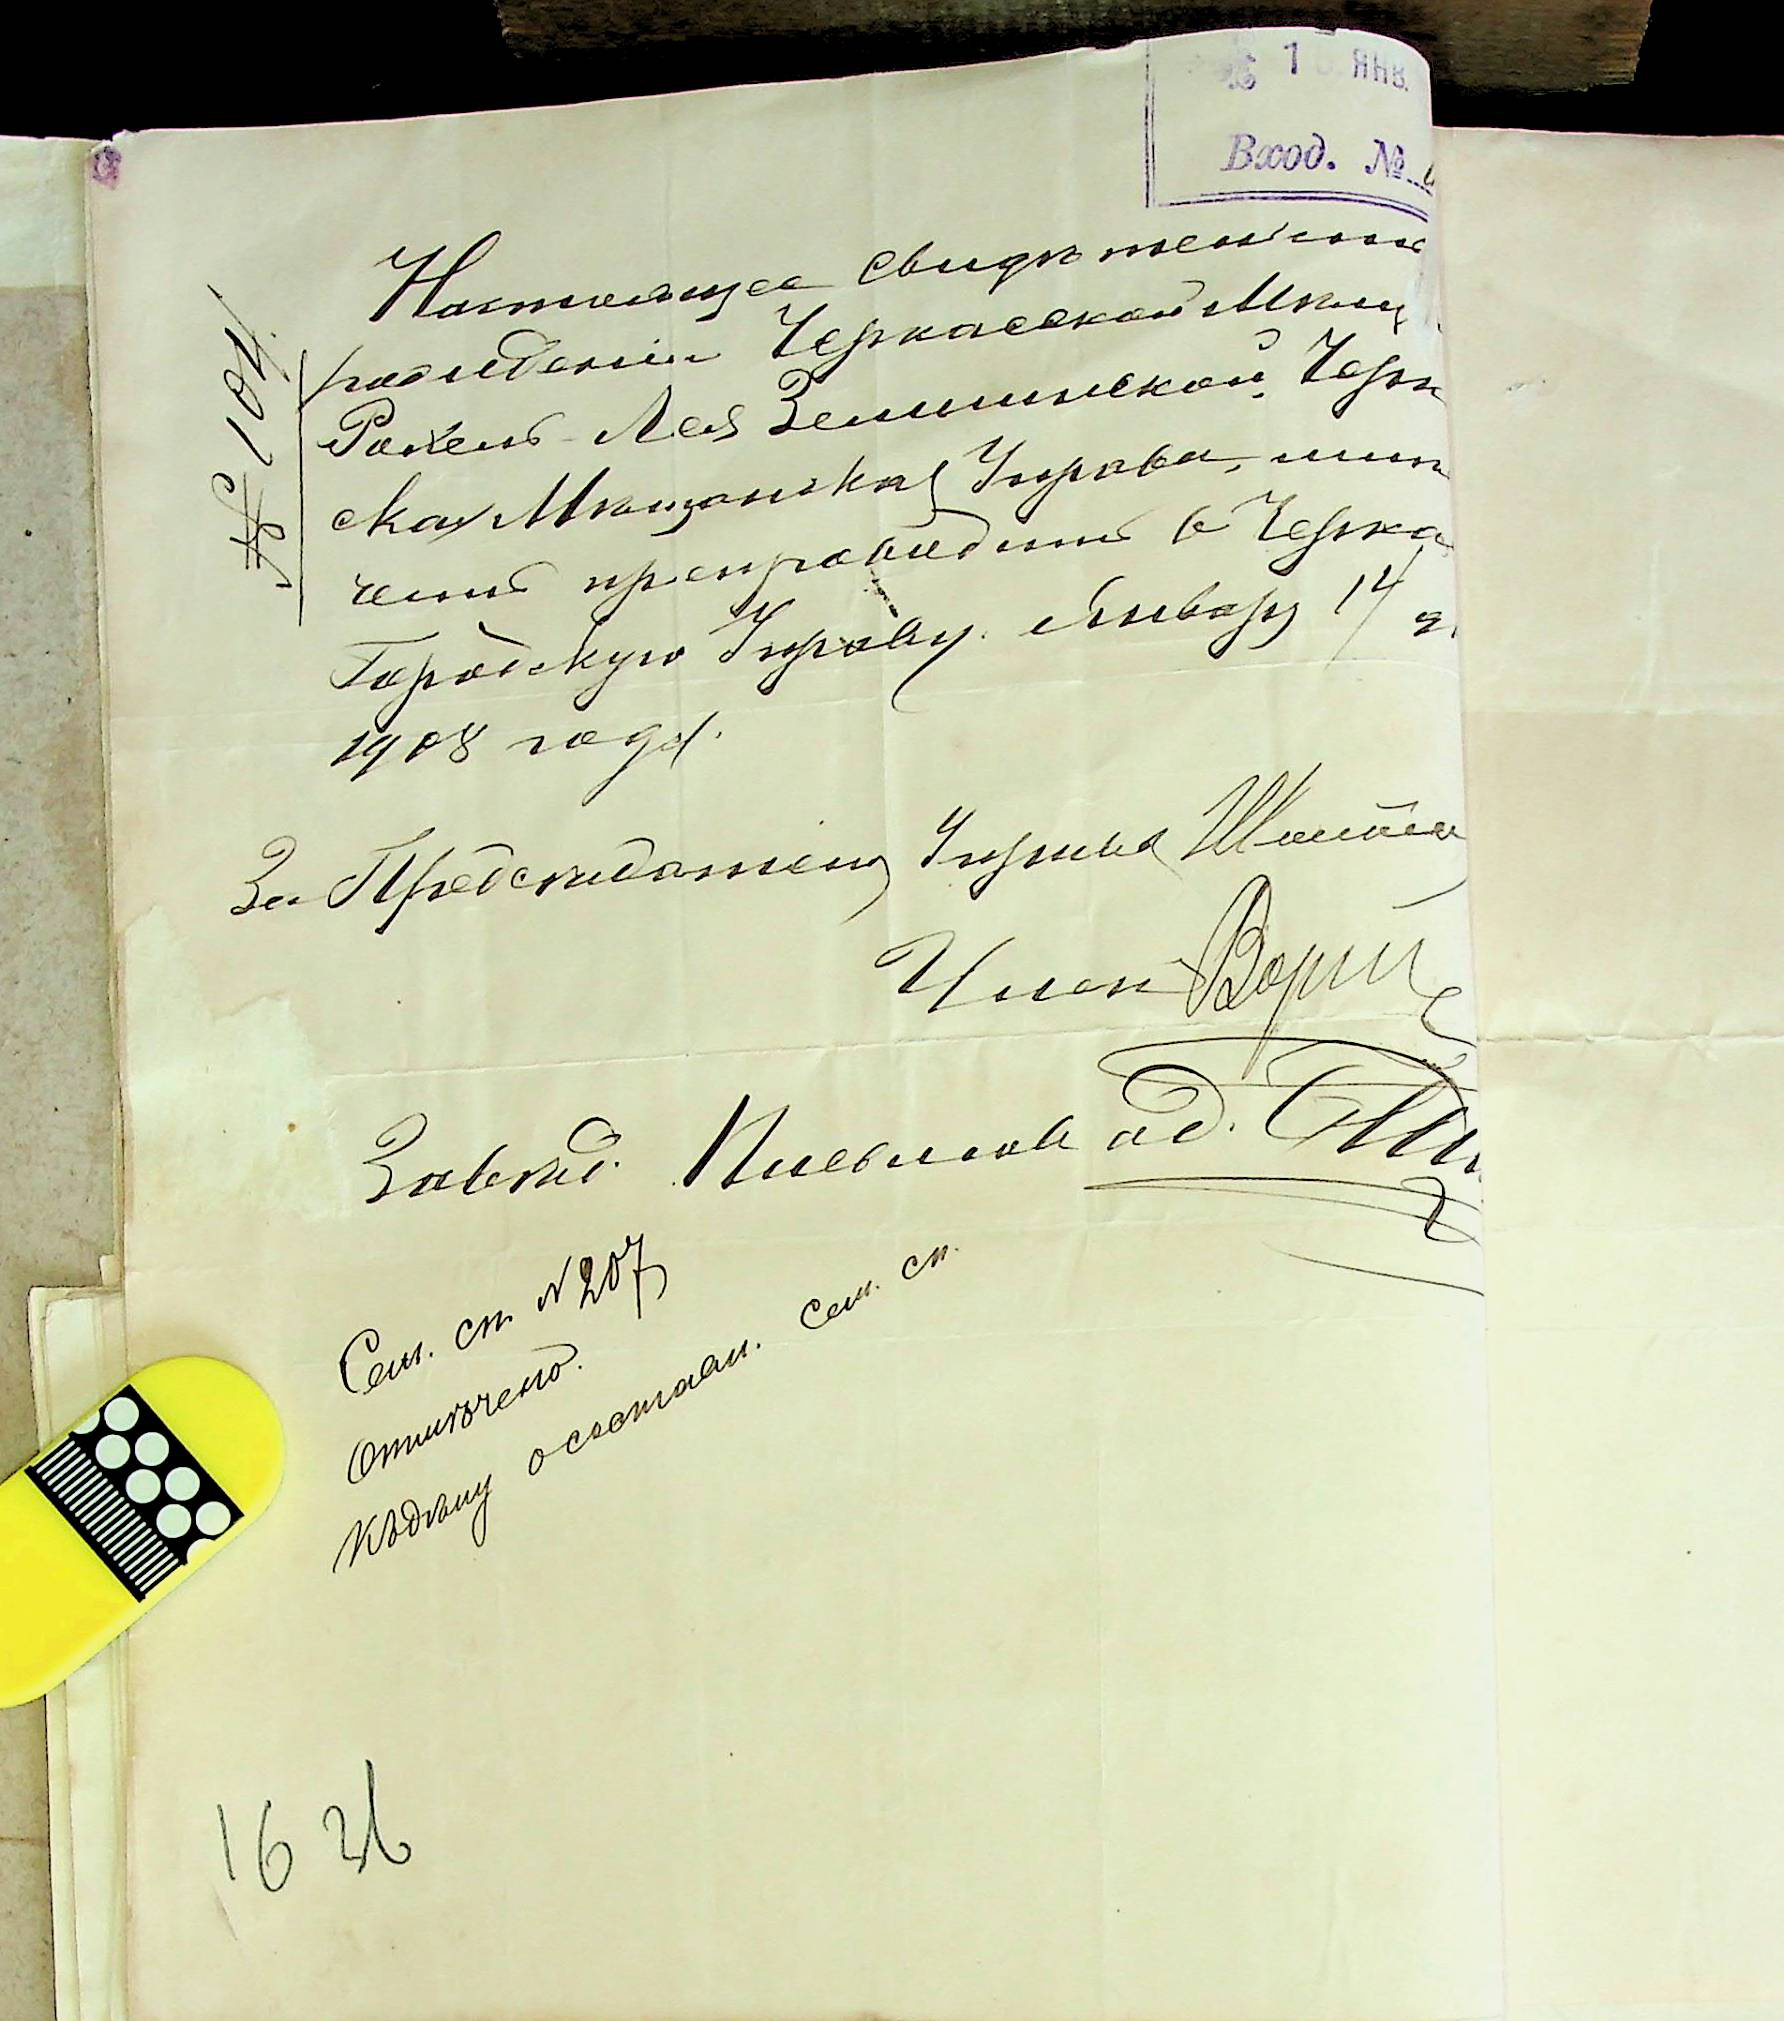 1 ЯНВ.
Вход. №
№ 104.
Настоящее свидетельство
рождении Черкасской Мѣщ
Рахели-Леи Земшинской, Черкас
ская Мѣщанская Управа, имѣ
честь препроводить в Черкас
Городскую Управу. Января 14 д
1908 года.
За Предсѣдателя Управы
Член
Завѣд. Письмовод.
Сем. сп. № 207
отмѣчено.
К дѣлу о состав. сем. сп.
16